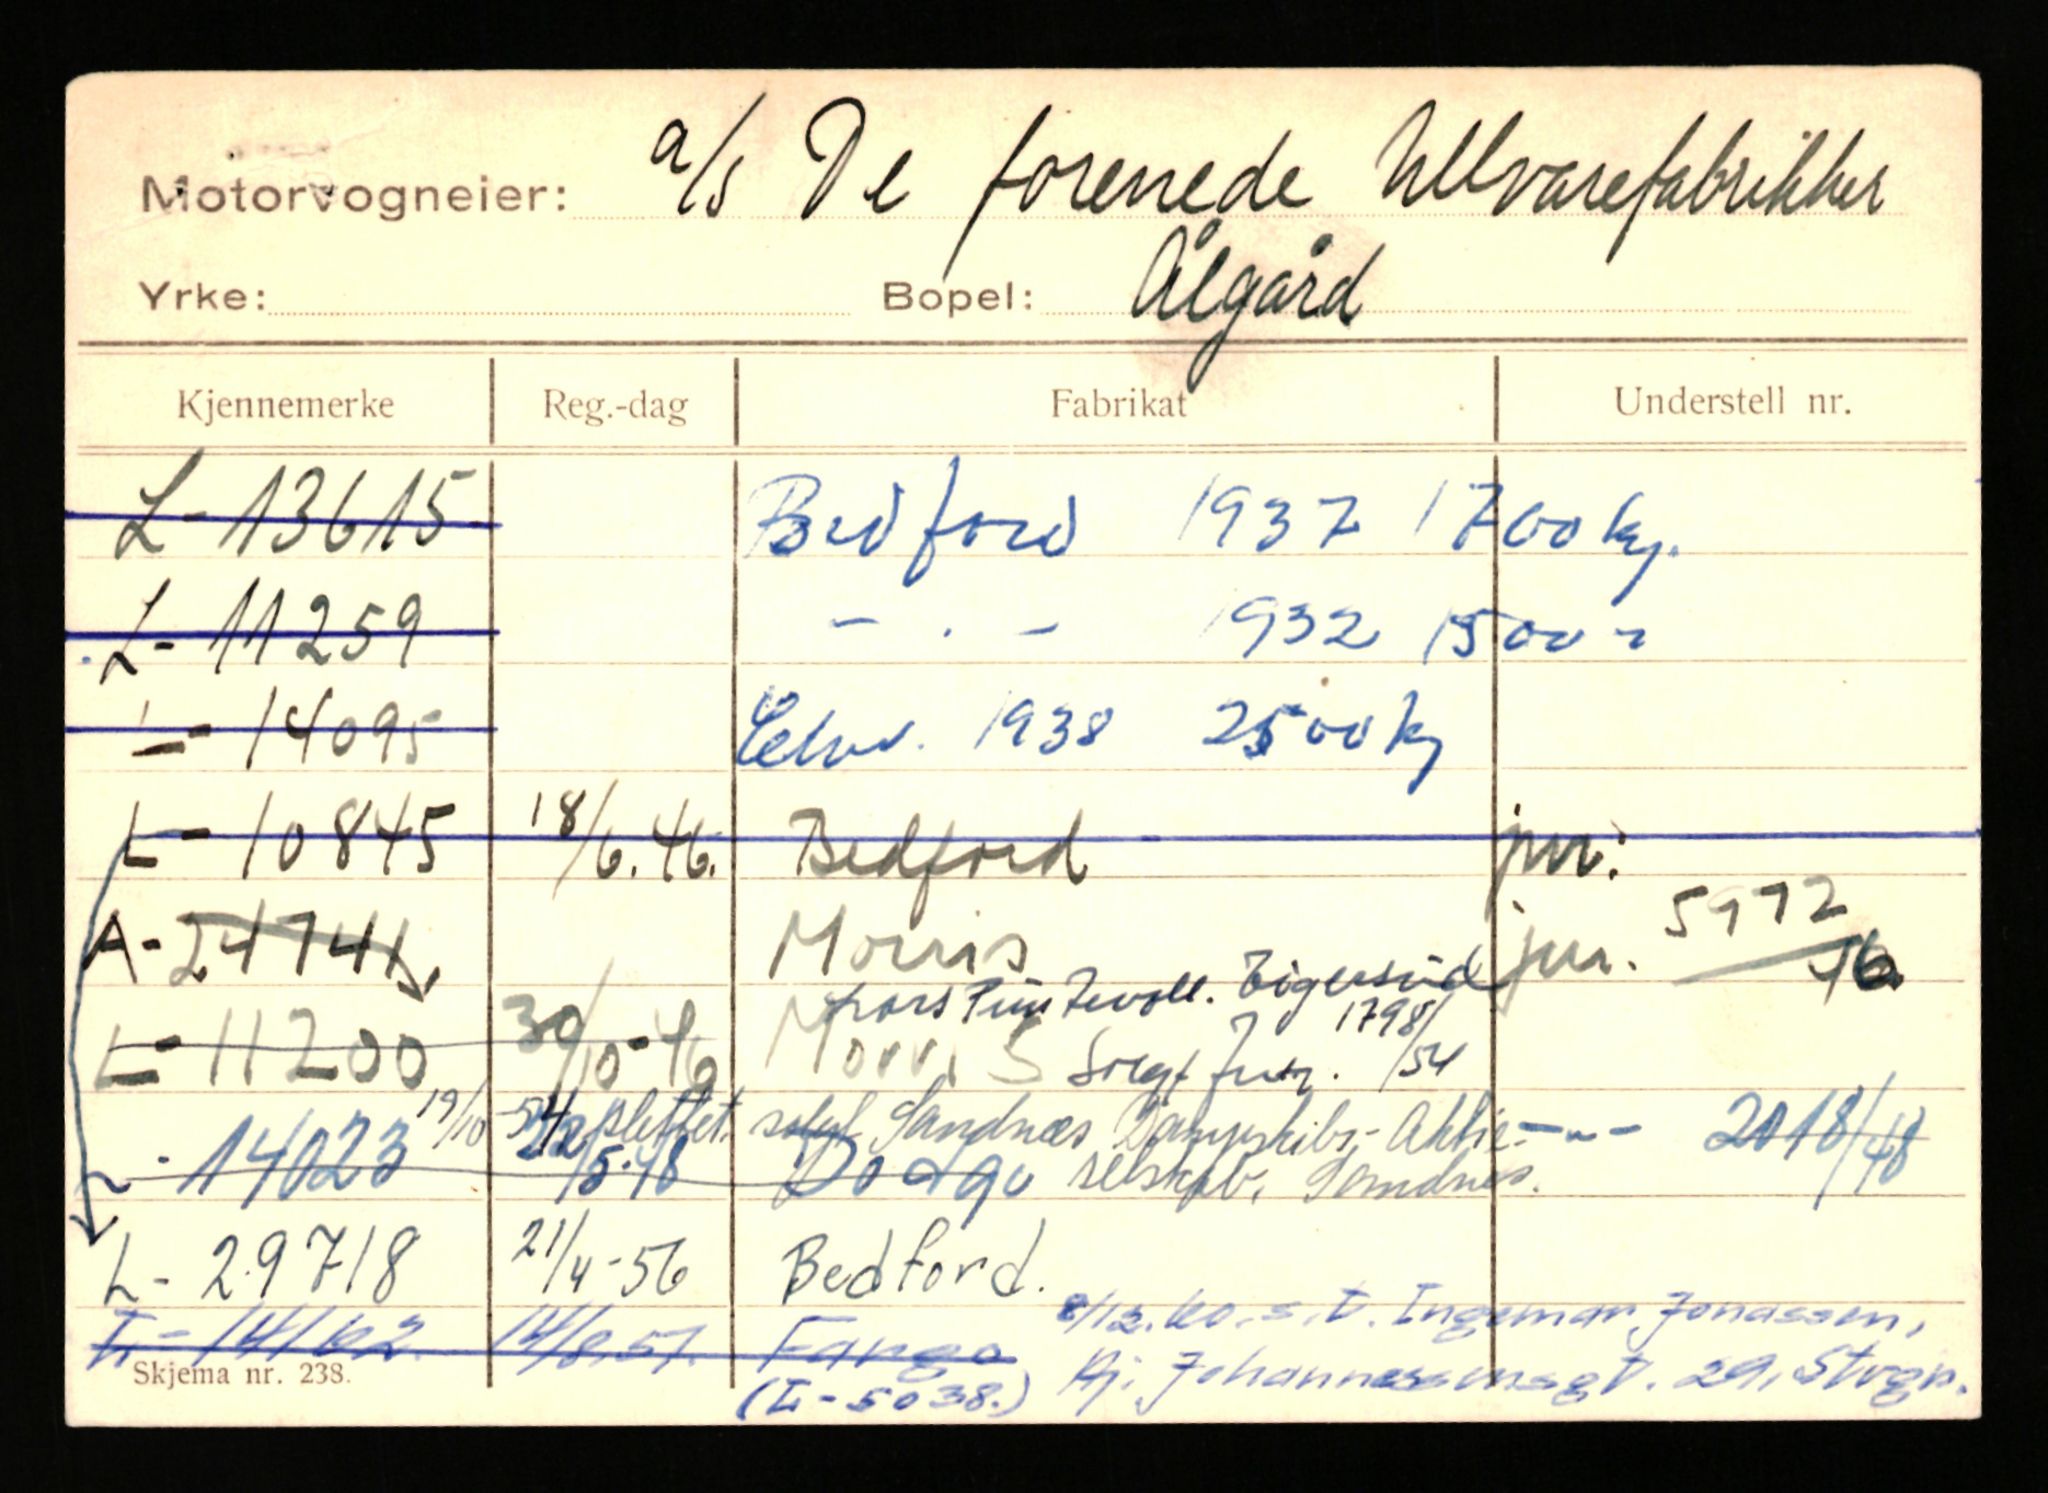 Motorvogneier: a/s De forenede Ullvarefabrikker
Yrke: Bopel: Ålgård
Kjennemerke Reg.-dag Fabrikat Understell nr.
L-13615 Bedford 1937 1700 kg.
L-11259 - . - 1932 1500 "
L-14095 Chev. 1938 2500 kg
L-10845 18/6.46. Bedford jnr:
A-24741 Morris jnr. 5972/46
Lars Eigersund
L-11200 30/10-46 Morris Solgt Jnr. 1798/54
19/10-54 slettet. solgt Sandnæs Dampskibs-Aktie-
L-14023 22/5.48 Dodge selskab, Sandnes. -"- 2018/48
L-29718 21/4-56 Bedford.
L-14162 14/8.51. Fargo 8/12.60. s.t. Ingemar Jonassen,
Skjema nr. 238. (L-5038.) Aj. Johannessensgt. 29, Stvgr.